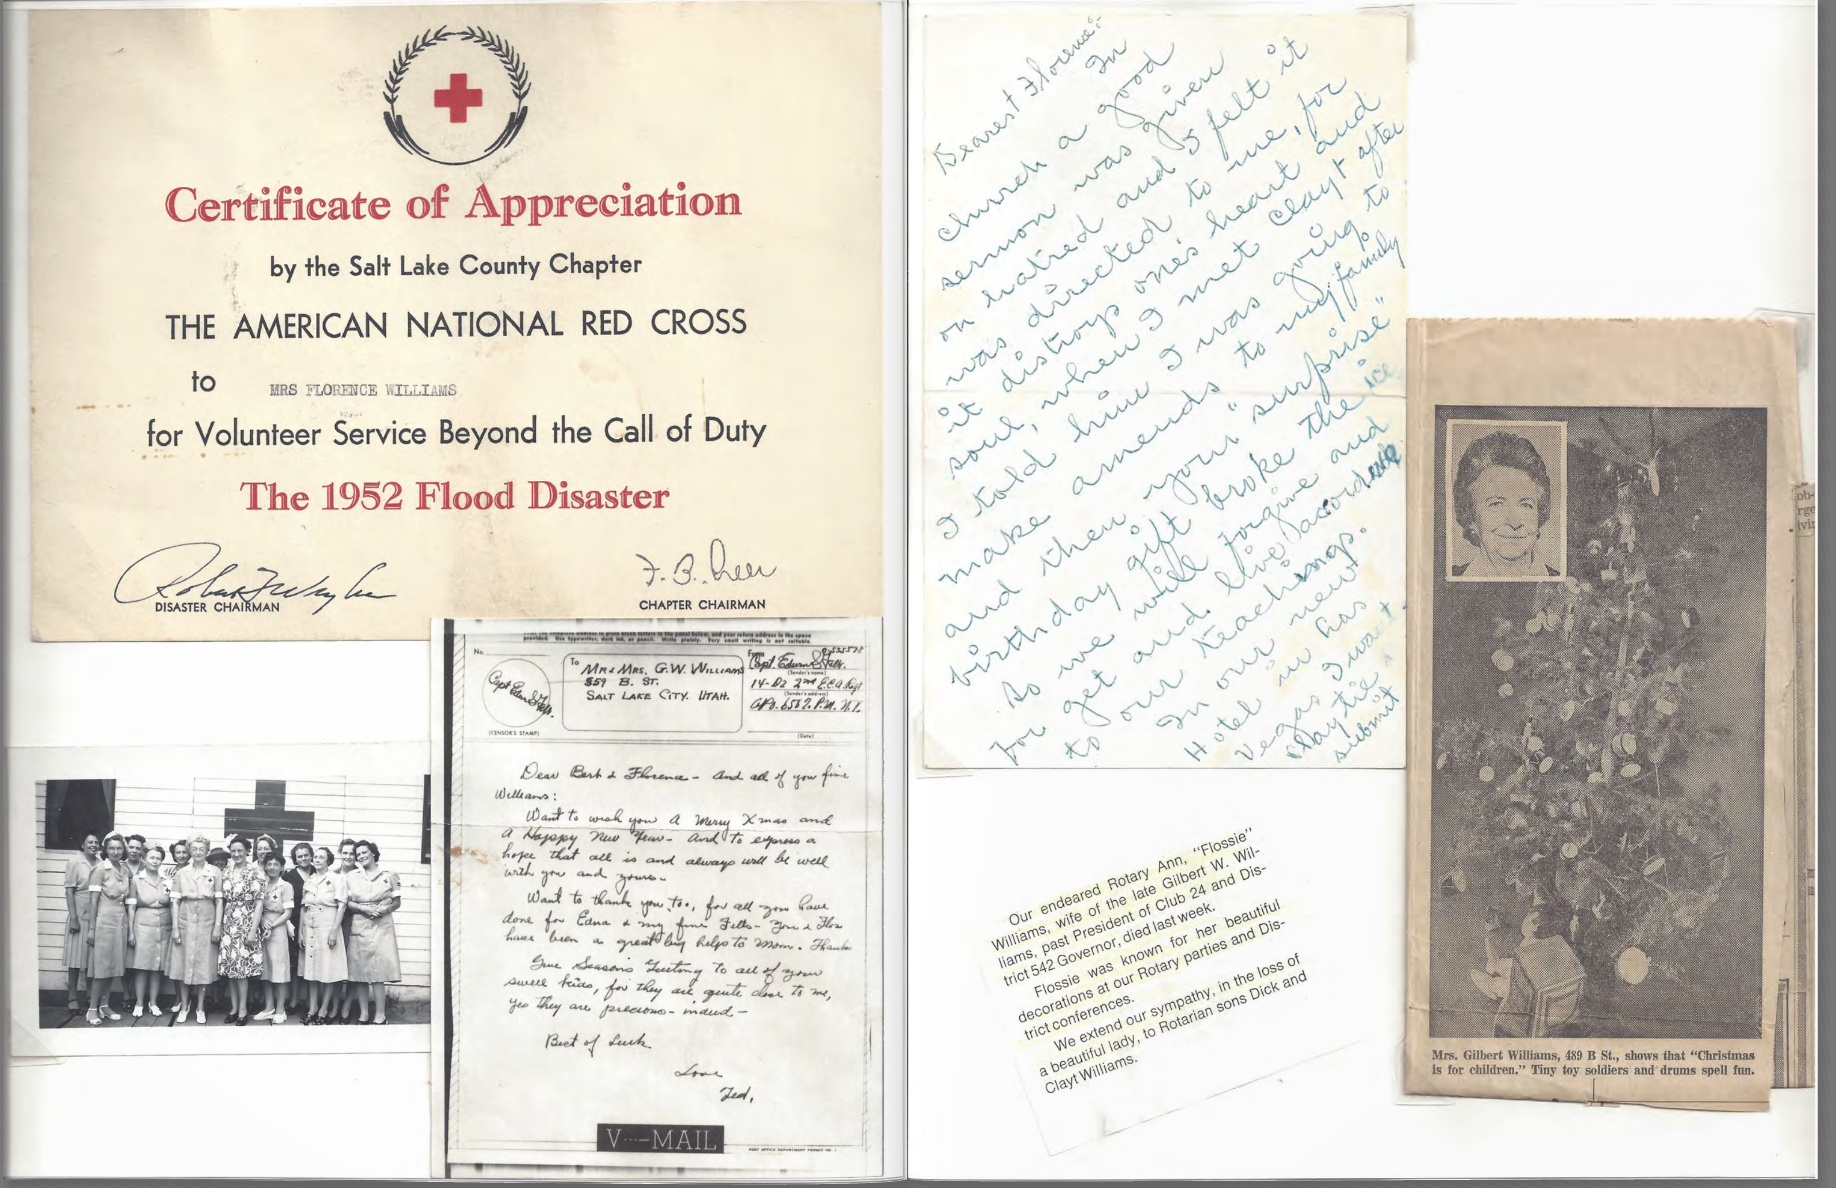 Certificate of Appreciation
by the Salt Lake County Chapter
THE AMERICAN NATIONAL RED CROSS
to MRS FLORENCE WILLIAMS
for Volunteer Service Beyond the Call of Duty
The 1952 Flood Disaster
DISASTER CHAIRMAN
CHAPTER CHAIRMAN
provided. Use typewriter, dark ink, or pencil. Write plainly. Very small writing is not suitable.
No.
(CENSOR'S STAMP)
To
MR & MRS. G.W. WILLIAMS
559 B. ST.
SALT LAKE CITY. UTAH.
From
(Sender's name)
(Sender's address)
(Date)
Dear Bert & Florence - And all of you fine
Williams:
Want to wish you a Merry Xmas and
a Happy New Year - And to express a
hope that all is and always will be well
with you and yours -
Want to thank you, too, for all you have
done for Edna & my fine Fells - You & Flow
have been a great big help to Mom. Thanks
Give Seasons Greeting to all of your
swell kids, for they are quite close to me,
Yes they are precious - indeed -
Best of Luck
Love
Ted,
V···—MAIL
POST OFFICE DEPARTMENT PERMIT NO. 1
Dearest Florence:
In
church a good
sermon was given
on hatred and I felt it
was directed to me, for
it distroys one's heart and
soul, when I met Clayt after
I told him I was going to
make amends to my family
and then your "surprise"
birthday gift broke the ice
So we will forgive and
for get and live
to our teachings.
In our new
Hotel in has
Vegas I want
Claytie
submit
Our endeared Rotary Ann, "Flossie"
Williams, wife of the late Gilbert W. Wil-
liams, past President of Club 24 and Dis-
trict 542 Governor, died last week.
Flossie was known for her beautiful
decorations at our Rotary parties and Dis-
trict conferences.
We extend our sympathy, in the loss of
a beautiful lady, to Rotarian sons Dick and
Clayt Williams.
Mrs. Gilbert Williams, 489 B St., shows that "Christmas
is for children." Tiny toy soldiers and drums spell fun.